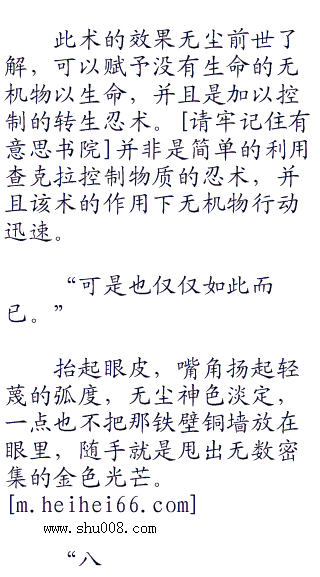 此术的效果无尘前世了
解，可以赋予没有生命的无
机物以生命，并且是加以控
制的转生忍术。[请牢记住有
意思书院]并非是简单的利用
查克拉控制物质的忍术，并
且该术的作用下无机物行动
迅速。
“可是也仅仅如此而
已。”
抬起眼皮，嘴角扬起轻
蔑的弧度，无尘神色淡定，
一点也不把那铁壁铜墙放在
眼里，随手就是甩出无数密
集的金色光芒。
[m.heihei66.com]
www.shu008.com
“八